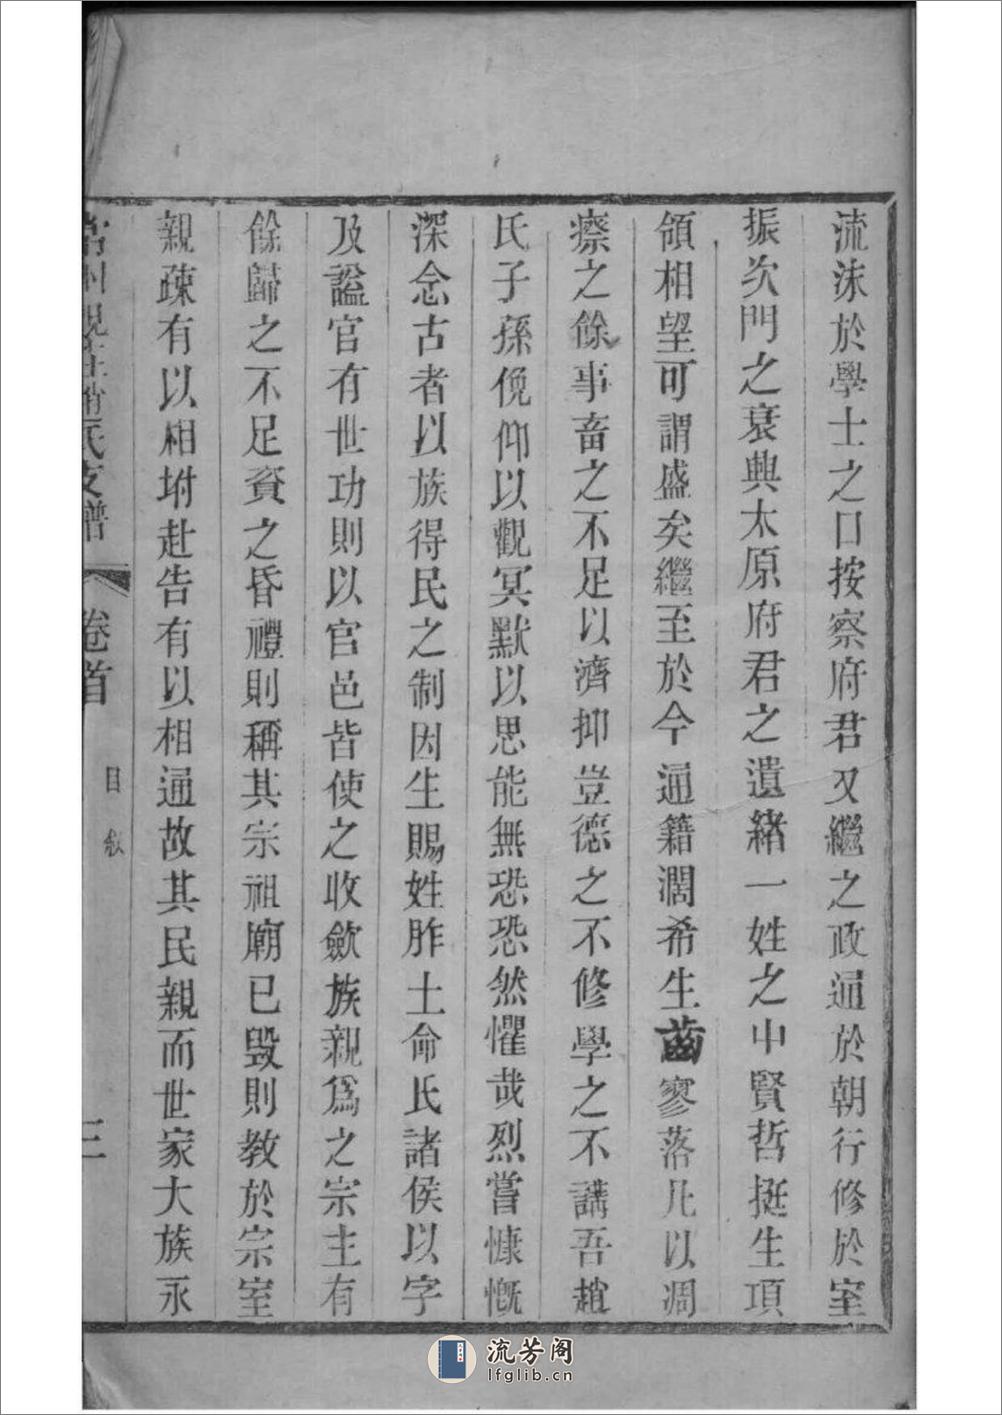 流沫於學士之口按察府君又繼之政通於朝行修於室
振次門之衰典太原府君之遺緒一姓之中賢哲挺生項
領相望可謂盛矣繼至於今通籍濶希生齒寥落凡以凋
瘵之餘事畜之不足以濟抑豈德之不修學之不講吾趙
氏子孫俛仰以觀冥默以思能無恐恐然懼哉烈嘗慷慨
深念古者以族得民之制因生賜姓胙土命氏諸侯以字
及諡官有世功則以官邑皆使之收歛族親爲之宗主有
餘歸之不足資之昏禮則稱其宗祖廟已毀則教於宗室
親疎有以相坿赴告有以相通故其民親而世家大族永
常州觀莊趙氏支譜
卷首
目敘
三
流芳阁
lfglib.cn